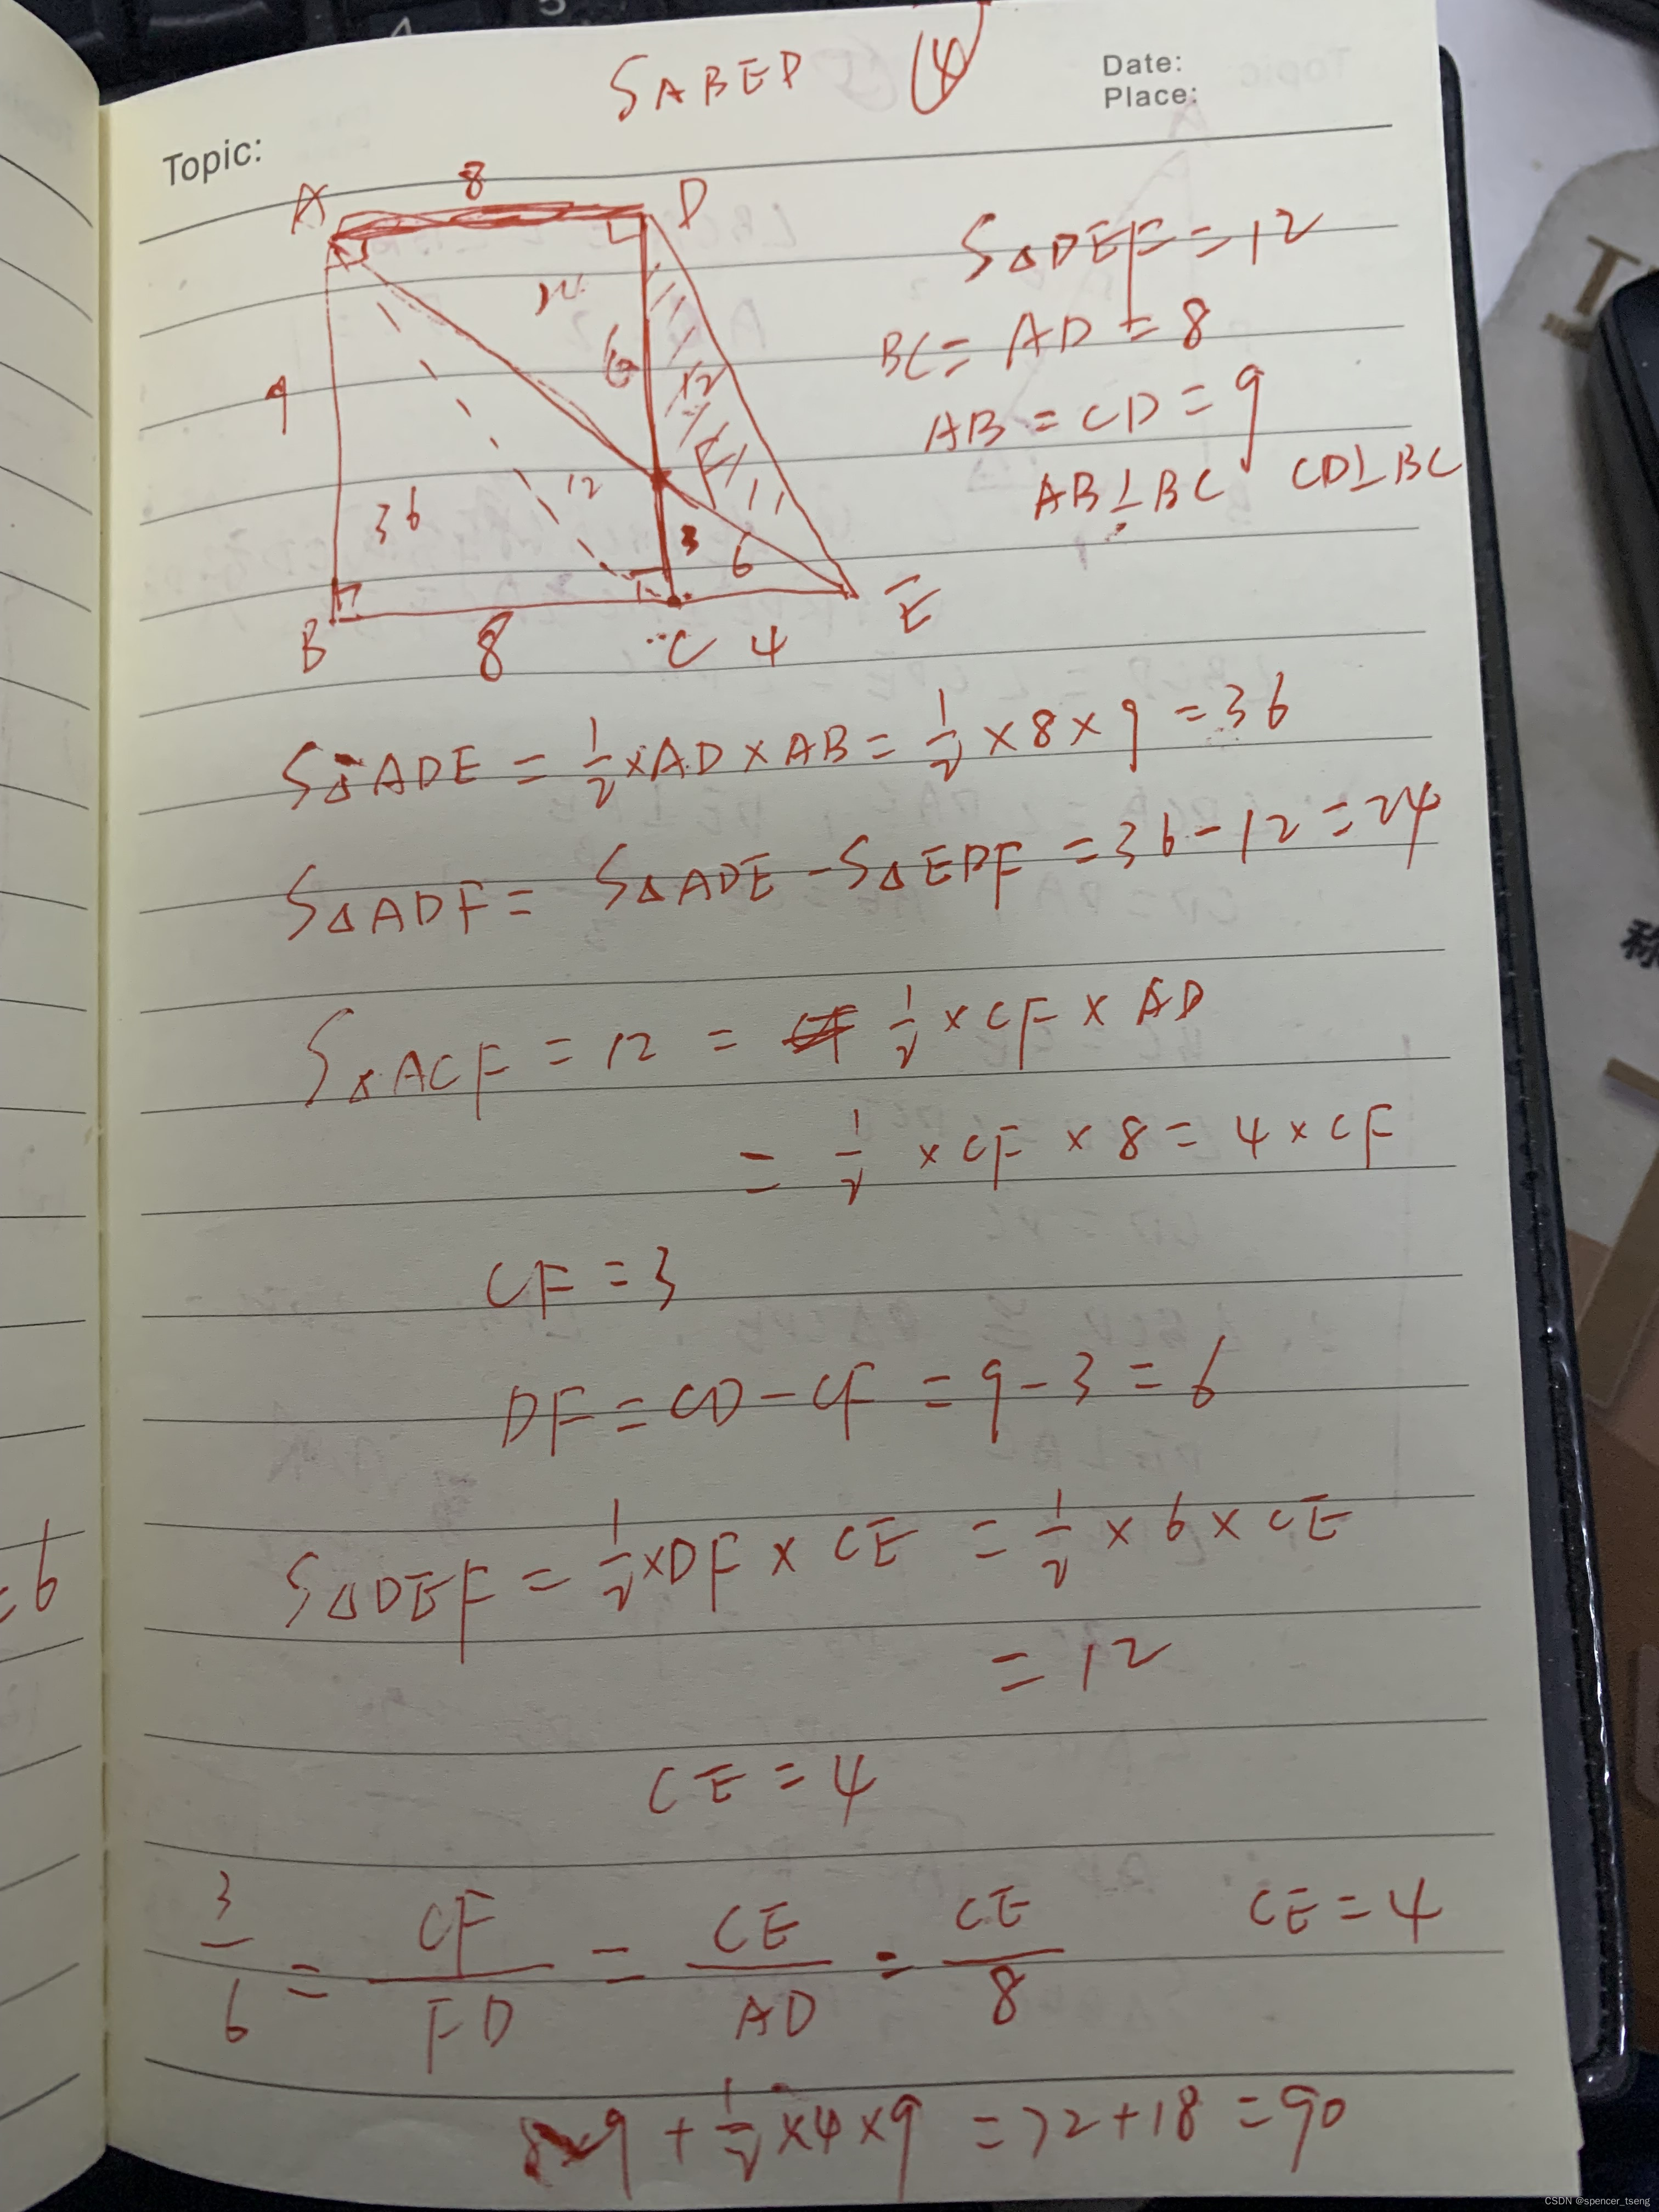 SABED ④
Date:
Place:
Topic:
A 8 D
S△DEF=12
24
BC=AD=8
9 6 12
AB=CD=9
F
AB⊥BC CD⊥BC
36 12 3 6
B 8 C 4 E
S△ADE = 1/2×AD×AB = 1/2×8×9 = 36
S△ADF = S△ADE - S△EDF = 36-12 = 24
S△ACF = 12 = 1/2×CF×AD
= 1/2×CF×8 = 4×CF
CF = 3
DF = CD - CF = 9-3 = 6
S△DEF = 1/2×DF×CE = 1/2×6×CE
= 12
CE = 4
3/6 = CF/FD = CE/AD = CE/8 CE = 4
8×9 + 1/2×4×9 = 72+18 = 90
=6
称
CSDN @spencer_tseng